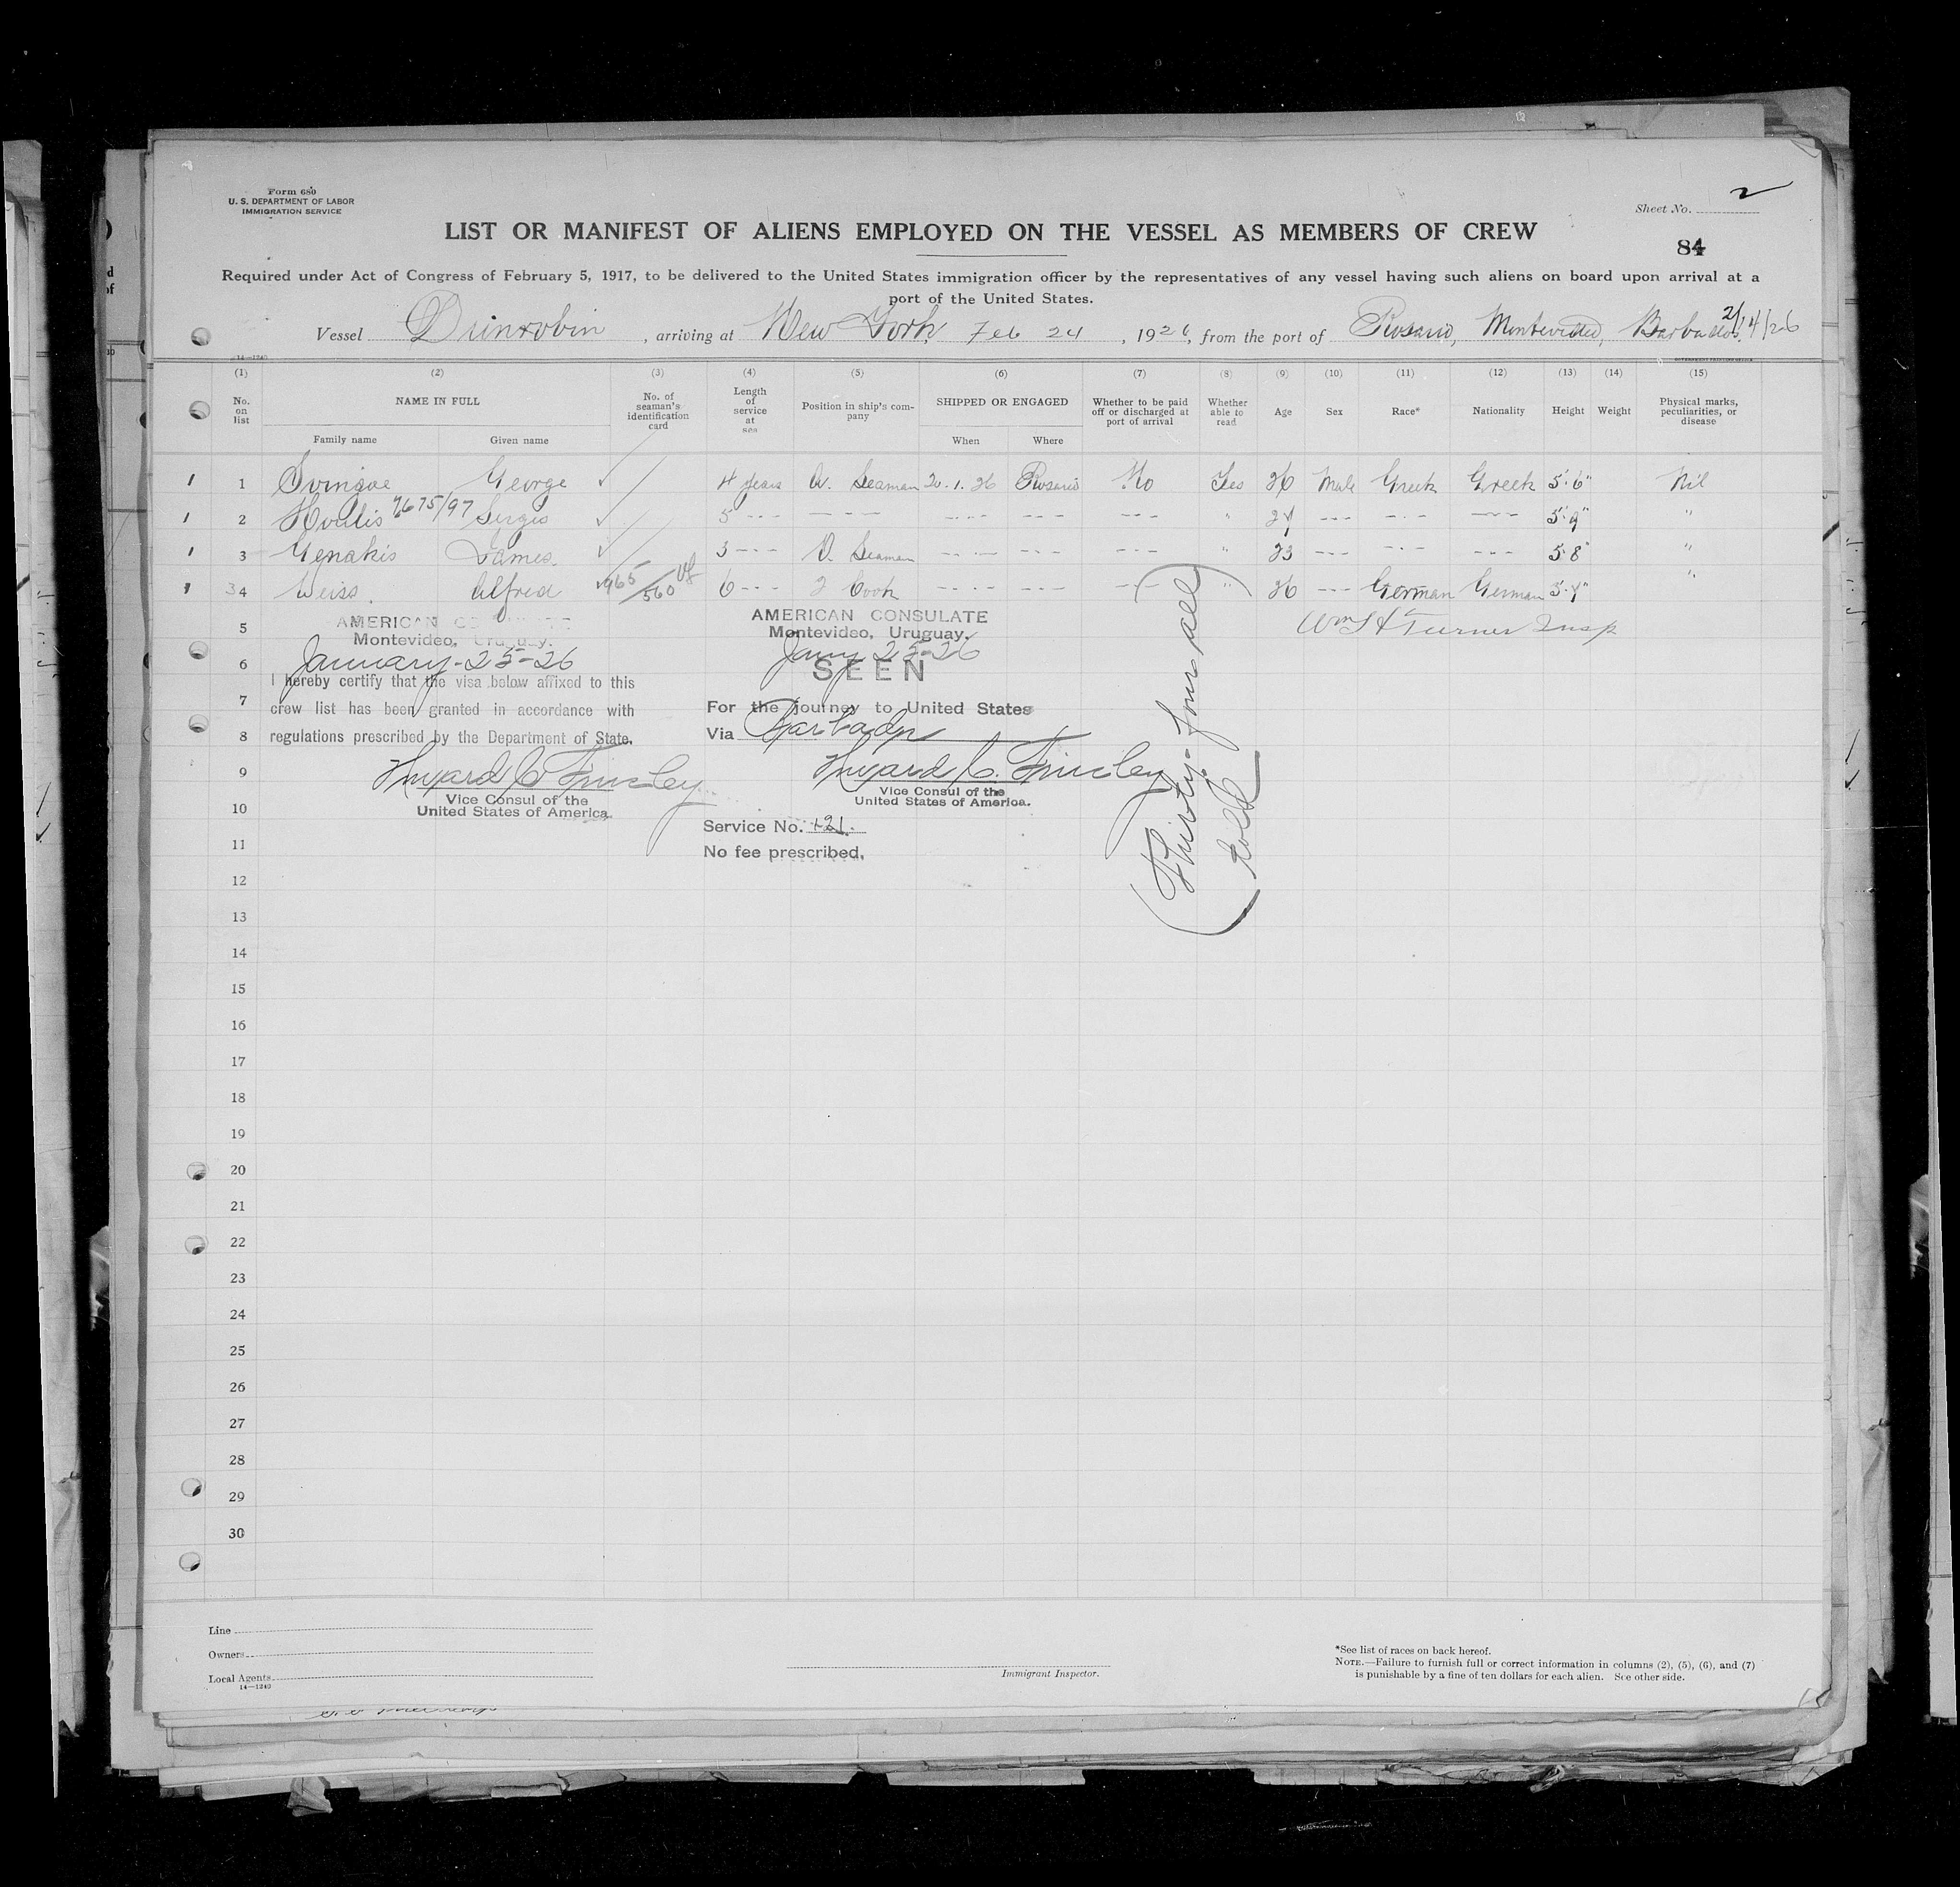 Form 680
U. S. DEPARTMENT OF LABOR
IMMIGRATION SERVICE
Sheet No. 2
LIST OR MANIFEST OF ALIENS EMPLOYED ON THE VESSEL AS MEMBERS OF CREW
84
Required under Act of Congress of February 5, 1917, to be delivered to the United States immigration officer by the representatives of any vessel having such aliens on board upon arrival at a
port of the United States.
Vessel Dunrobin, arriving at New York Feb 24, 1926, from the port of Rosario, Montevideo, Barbados 2/14/26
14—1240
(1) (2) (3) (4) (5) (6) (7) (8) (9) (10) (11) (12) (13) (14) (15)
No. on list
NAME IN FULL
Family name
Given name
No. of seaman's identification card
Length of service at sea
Position in ship's company
SHIPPED OR ENGAGED
When
Where
Whether to be paid off or discharged at port of arrival
Whether able to read
Age
Sex
Race*
Nationality
Height
Weight
Physical marks, peculiarities, or disease
1 1 George 4 years A. Seaman 20.1.26 Rosario No Yes 26 Male Greek Greek 5'6" Nil
1 2 7675/97 5 --- --- --- --- --- " --- --- --- 5'9" "
1 3 Genakis James 3 --- O. Seaman --- --- --- " 23 --- --- --- 5'8" "
1 34 Weiss Alfred 965/560 6 --- 2 Cook --- --- --- " 26 --- German German "
5 AMERICAN CONSULATE AMERICAN CONSULATE Wm H Turner Insp
Montevideo, Uruguay. Montevideo, Uruguay.
6 January-25-26 Jany 25-26
SEEN
I hereby certify that the visa below affixed to this
7 crew list has been granted in accordance with For the journey to United States
8 regulations prescribed by the Department of State. Via Barbados
9 Vice Consul of the Vice Consul of the
10 United States of America. United States of America.
Service No. 121.
11 No fee prescribed.
(Thirty-four all
told)
12
13
14
15
16
17
18
19
20
21
22
23
24
25
26
27
28
29
30
Line
Owners
Local Agents
14—1240
Immigrant Inspector.
*See list of races on back hereof.
NOTE.—Failure to furnish full or correct information in columns (2), (5), (6), and (7)
is punishable by a fine of ten dollars for each alien. See other side.